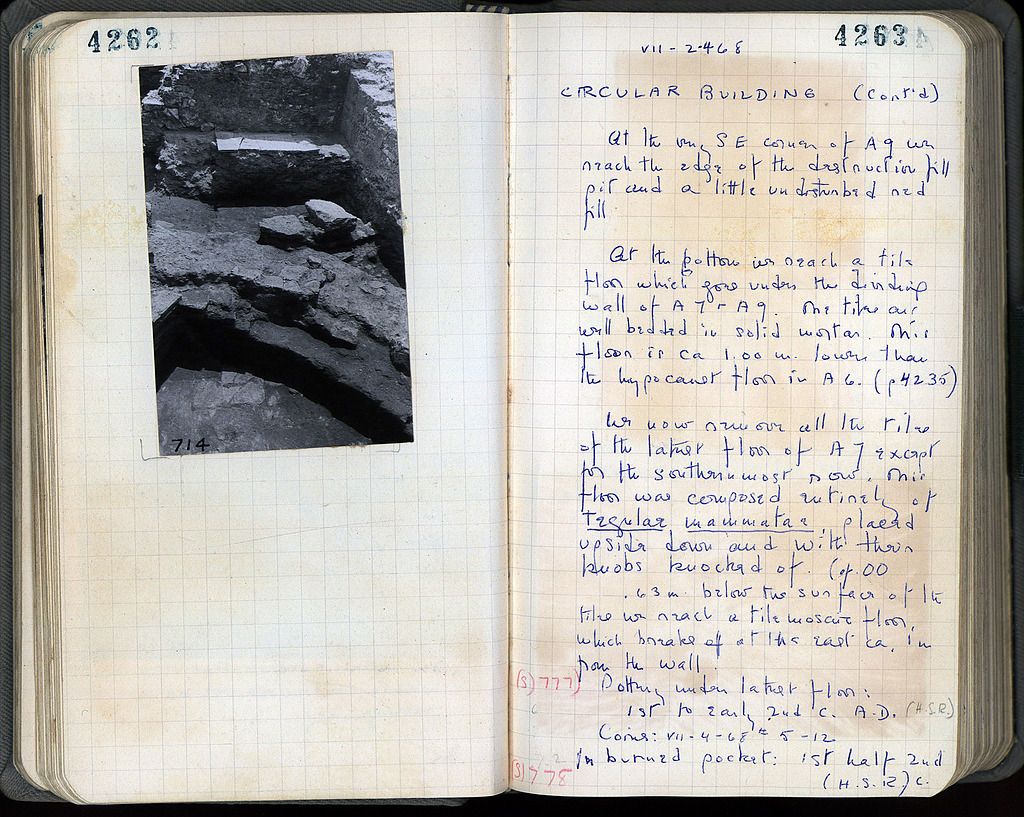 4262
714
4263
VII-2-468
CIRCULAR BUILDING (cont'd)
At the very SE corner of A9 we
reach the edge of the destruction fill
pit and a little undisturbed red
fill.
At the bottom we reach a tile
floor which goes under the dividing
wall of A7-A9. The tiles are
well bedded in solid mortar. This
floor is ca 1.00 m. lower than
the hypocaust floor in A6. (p4235)
We now remove all the tiles
of the latest floor of A7 except
for the southernmost row. This
floor was composed entirely of
tegulae mammatae, placed
upside down and with their
knobs knocked of. (cf. OO
.63m. below the surface of the
tiles we reach a tile mosaic floor,
which breaks of at the east ca. 1m
from the wall.
(S) 777) Pottery under latest floor:
1st to early 2nd c. A.D. (H.S.R.)
Coins: VII-4-68 5-12
(S) 778 In burned pocket: 1st half 2nd
(H.S.R.) c.